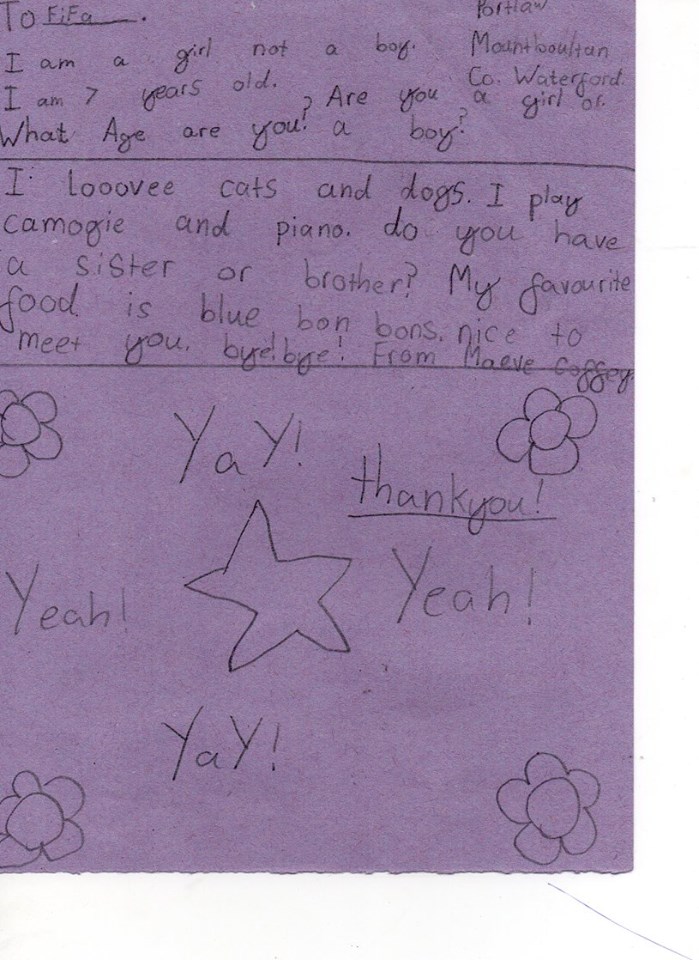 To FiFa.
Portlaw
Mountboultan
Co. Waterford.
I am a girl not a boy.
I am 7 years old.
? Are you a girl or
What Age are you! a boy?
I looovee cats and dogs. I play
camogie and piano. do you have
a sister or brother? My favourite
food is blue bon bons. nice to
meet you. bye!bye! From Maeve Coffey
YaY!
thankyou!
Yeah!
Yeah!
YaY!